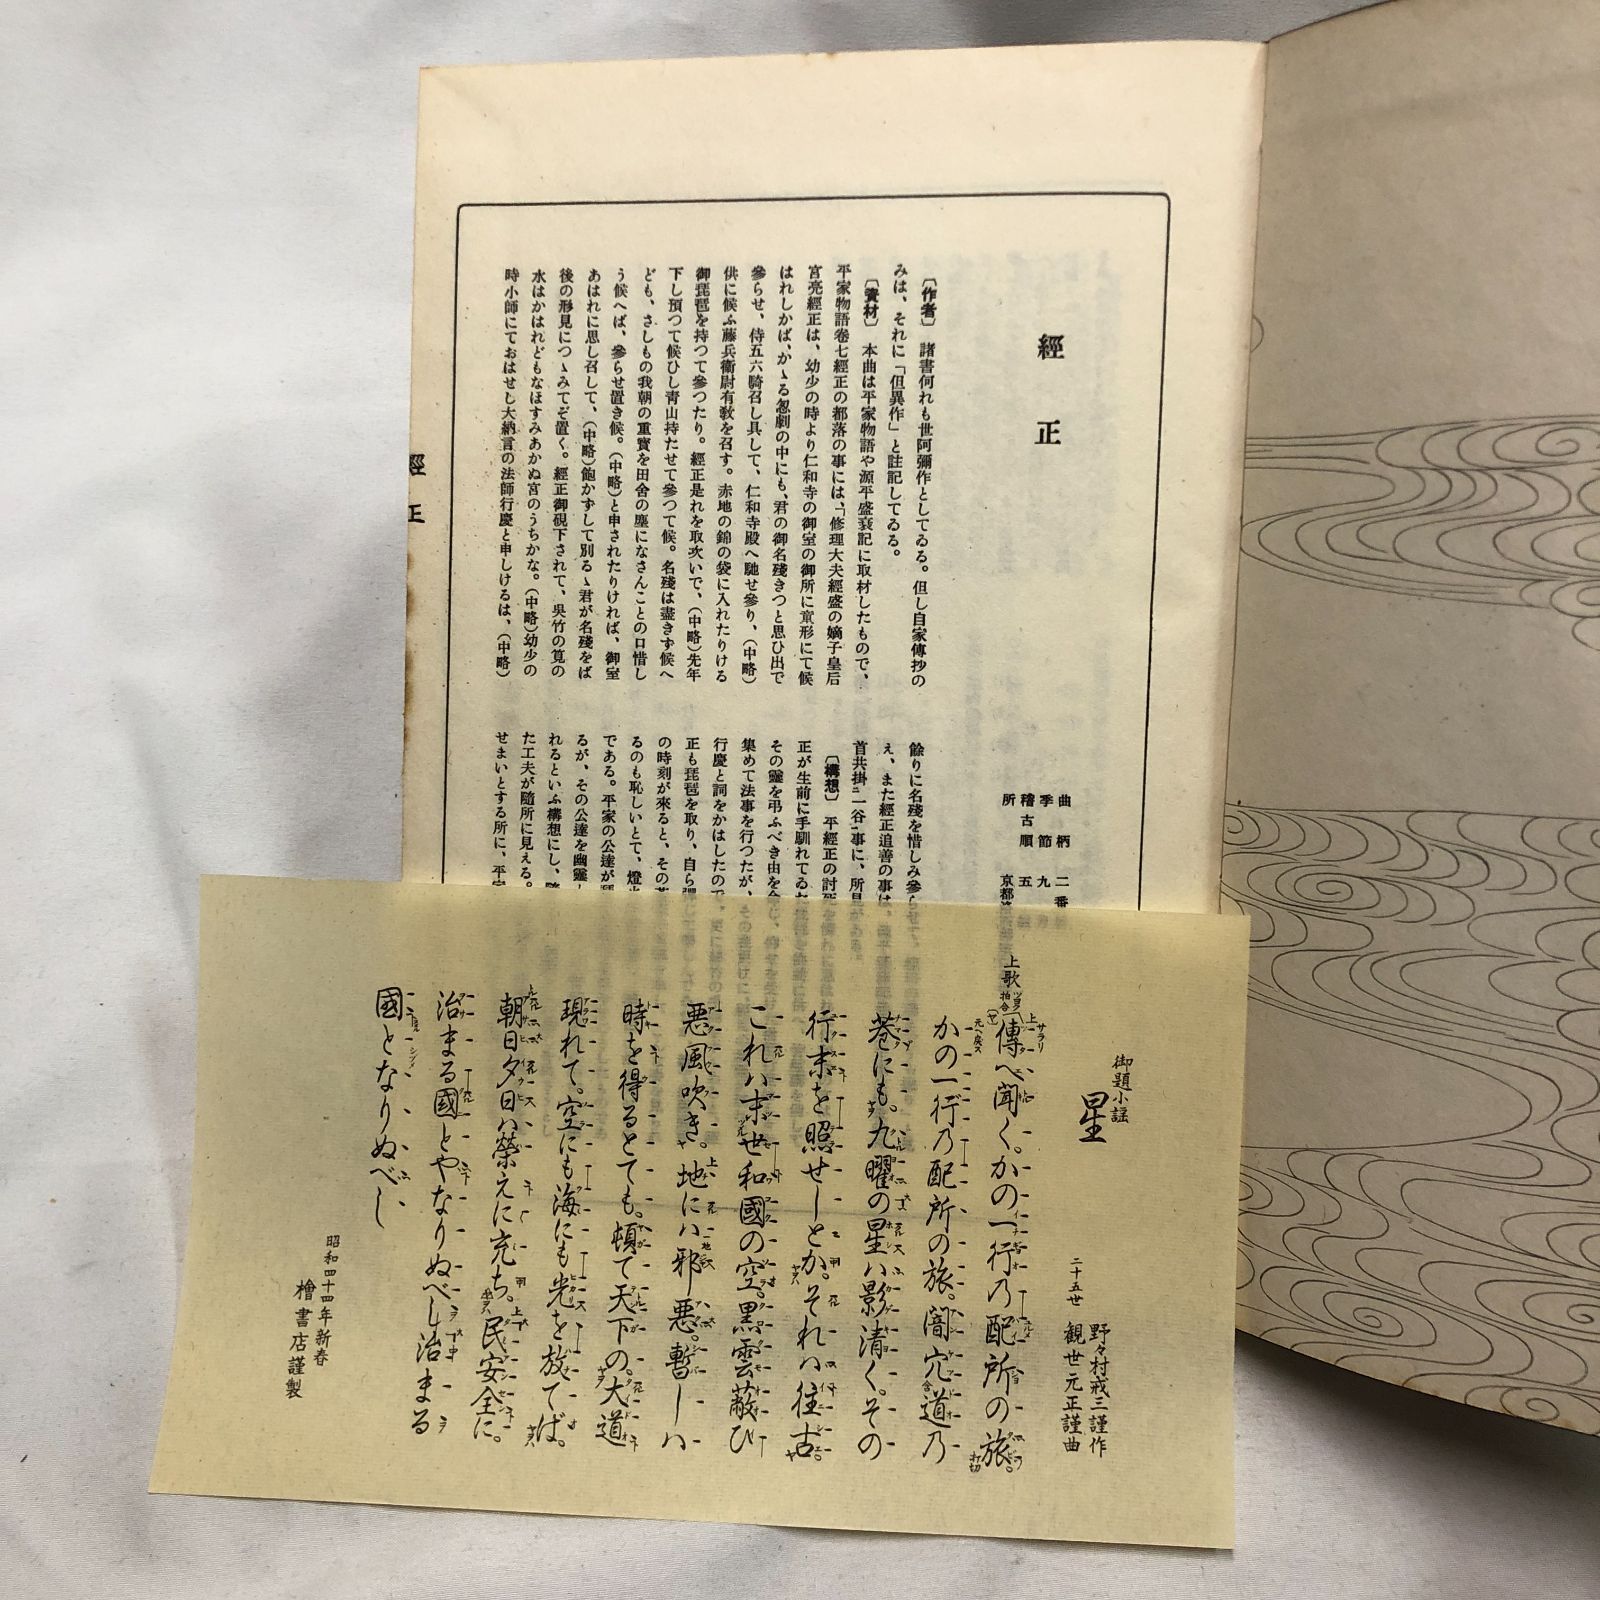 經正
曲柄 二番
季節 九
稽古順 五
所 京都
〔作者〕 諸書何れも世阿彌作としてゐる。但し自家傳抄の
みは、それに「但異作」と註記してゐる。
〔資材〕 本曲は平家物語や源平盛衰記に取材したもので、
平家物語卷七經正の都落の事には、「修理大夫經盛の嫡子皇后
宮亮經正は、幼少の時より仁和寺の御室の御所に童形にて候
はれしかば、かゝる怱劇の中にも、君の御名殘きつと思ひ出で
參らせ、侍五六騎召し具して、仁和寺殿へ馳せ參り、(中略)
供に候ふ藤兵衞尉有敎を召す。赤地の錦の袋に入れたりける
御琵琶を持つて參つたり。經正是れを取次いで、(中略)先年
下し預つて候ひし青山持たせて參つて候。名殘は盡きず候へ
ども、さしもの我朝の重寶を田舍の塵になさんことの口惜し
う候へば、參らせ置き候。(中略)と申されたりければ、御室
あはれに思し召して、(中略)飽かずして別るゝ君が名殘をば
後の形見につゝみてぞ置く。經正御硯下されて、呉竹の筧の
水はかはれどもなほすみあかぬ宮のうちかな。(中略)幼少の
時小師にておはせし大納言の法師行慶と申しけるは、(中略)
餘りに名殘を惜しみ參ら
え、また經正追善の事は
首共掛一谷事に、所見
〔構想〕 平經正の討死
正が生前に手馴れてゐた
その靈を弔ふべき由を
集めて法事を行つたが、
行慶と詞をかはしたので、
正も琵琶を取り、自ら彈
の時刻が來ると、その
るのも恥しいとて、燈
である。平家の公達が
るが、その公達を幽靈
れるといふ構想にし、
た工夫が隨所に見える。
せまいとする所に、平
經正
御題小謡
星
野々村戒三謹作
二十五世 観世元正謹曲
上歌 拍合 ツヨク
サラリ
傳へ聞く。かの一行乃配所の旅。
打切
元ヘ戻ス
かの一行乃配所の旅。闇穴道乃
巷にも。九曜の星ハ影清くその
行末を照せしとか。それハ往古。
これハ末世和國の空。黒雲蔽ひ
悪風吹き。地にハ邪悪。暫しハ
時を得るとても。頓て天下の。大道
現れて。空にも海にも光を放てば。
朝日夕日ハ榮えに充ち。民安全に。
治まる國とやなりぬべし治まる
國となりぬべし
昭和四十四年新春
檜書店謹製